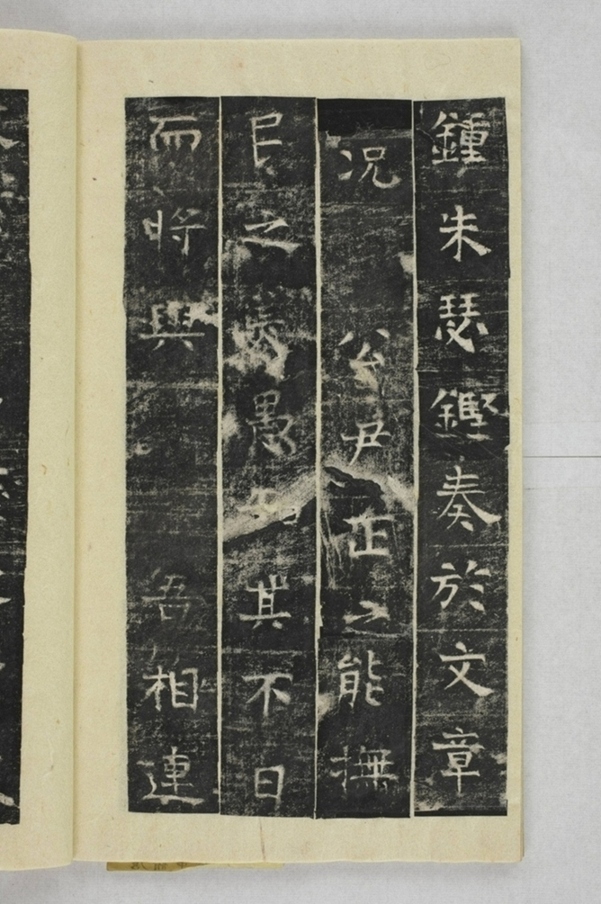 鍾朱瑟鏗奏於文章
况公尹正之能撫
民之愚知其不日
而將興吾相連